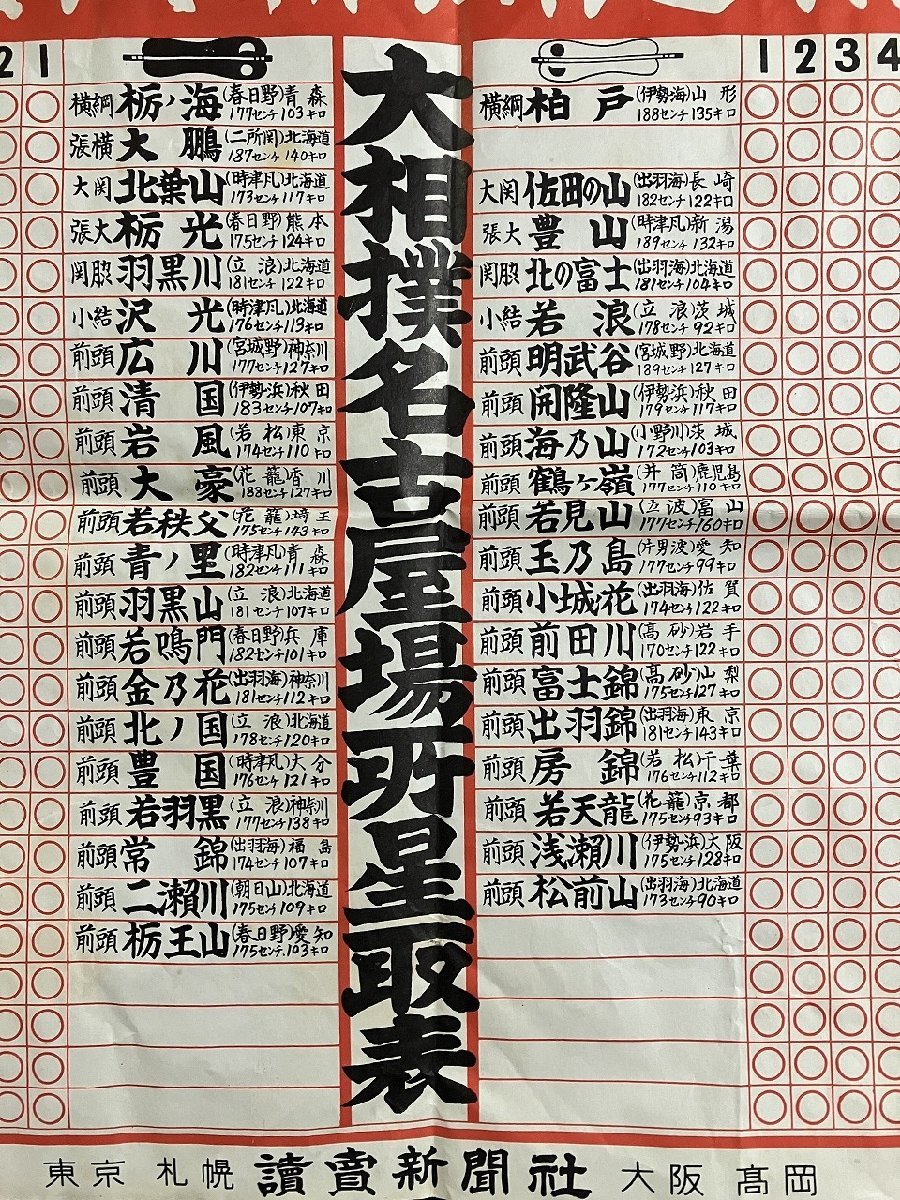 大相撲名古屋場所星取表
1 2 3 4
横綱 柏戸 (伊勢海)山形 188センチ135キロ
大関 佐田の山 (出羽海)長崎 182センチ122キロ
張大 豊山 (時津凡)新潟 189センチ132キロ
関脇 北の富士 (出羽海)北海道 181センチ104キロ
小結 若浪 (立浪)茨城 178センチ92キロ
前頭 明武谷 (宮城野)北海道 189センチ127キロ
前頭 開隆山 (伊勢浜)秋田 179センチ117キロ
前頭 海乃山 (小野川)茨城 172センチ103キロ
前頭 鶴ヶ嶺 (井筒)鹿児島 177センチ110キロ
前頭 若見山 (立波)富山 177センチ160キロ
前頭 玉乃島 (片男波)愛知 177センチ99キロ
前頭 小城花 (出羽海)佐賀 174センチ122キロ
前頭 前田川 (高砂)岩手 170センチ122キロ
前頭 富士錦 (高砂)山梨 175センチ127キロ
前頭 出羽錦 (出羽海)東京 181センチ143キロ
前頭 房錦 (若松)千葉 176センチ112キロ
前頭 若天龍 (花籠)京都 175センチ93キロ
前頭 浅瀬川 (伊勢浜)大阪 175センチ128キロ
前頭 松前山 (出羽海)北海道 173センチ90キロ
2 1
横綱 栃ノ海 (春日野)青森 177センチ103キロ
張横 大鵬 (二所関)北海道 187センチ140キロ
大関 北葉山 (時津凡)北海道 173センチ117キロ
張大 栃光 (春日野)熊本 175センチ124キロ
関脇 羽黒川 (立浪)北海道 181センチ122キロ
小結 沢光 (時津凡)北海道 176センチ113キロ
前頭 広川 (宮城野)神奈川 177センチ127キロ
前頭 清国 (伊勢浜)秋田 183センチ107キロ
前頭 岩風 (若松)東京 174センチ110キロ
前頭 大豪 (花籠)香川 188センチ127キロ
前頭 若秩父 (花籠)埼玉 175センチ143キロ
前頭 青ノ里 (時津凡)青森 182センチ111キロ
前頭 羽黒山 (立浪)北海道 181センチ107キロ
前頭 若鳴門 (春日野)兵庫 182センチ101キロ
前頭 金乃花 (出羽海)神奈川 181センチ112キロ
前頭 北ノ国 (立浪)北海道 178センチ120キロ
前頭 豊国 (時津凡)大分 176センチ121キロ
前頭 若羽黒 (立浪)神奈川 177センチ138キロ
前頭 常錦 (出羽海)福島 174センチ107キロ
前頭 二瀬川 (朝日山)北海道 175センチ109キロ
前頭 栃王山 (春日野)愛知 175センチ103キロ
東京 札幌 讀賣新聞社 大阪 髙岡